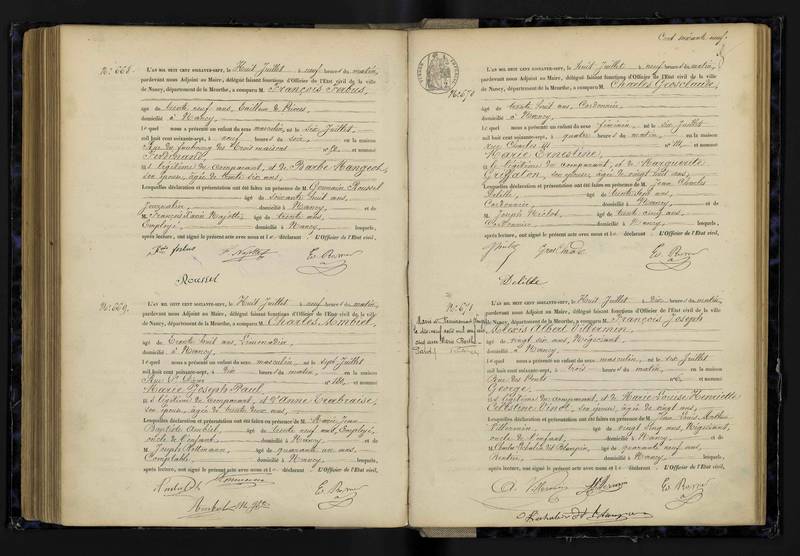 N° 668.
L'AN MIL HUIT CENT SOIXANTE-SEPT, le Huit Juillet à neuf heures du matin,
pardevant nous Adjoint au Maire, délégué faisant fonctions d'Officier de l'Etat civil de la ville
de Nancy, département de la Meurthe, a comparu M. François
âgé de trente neuf ans,
domicilié à Nancy,
lequel nous a présenté un enfant du sexe masculin, né le six Juillet
mil huit cent soixante-sept, à neuf heures du soir, en la maison
Rue du faubourg des Trois maisons n° et nommé
Ferdinand,
fils légitime du comparant, et de Barbe Mangeot,
son épouse, âgée de trente six ans,
Lesquelles déclaration et présentation ont été faites en présence de M. Germain Roussel
âgé de soixante huit ans,
Journalier, domicilié à Nancy, et de
M. François Xavier âgé de trente ans,
Employé, domicilié à Nancy, lesquels,
après lecture, ont signé le présent acte avec nous et le déclarant. L'Officier de l'Etat civil,
Roussel
N° 669.
L'AN MIL HUIT CENT SOIXANTE-SEPT, le Huit Juillet à neuf heures du matin,
pardevant nous Adjoint au Maire, délégué faisant fonctions d'Officier de l'Etat civil de la ville
de Nancy, département de la Meurthe, a comparu M. Charles Ambiel,
âgé de Trente huit ans,
domicilié à Nancy,
lequel nous a présenté un enfant du sexe masculin, né le sept Juillet
mil huit cent soixante-sept, à dix heures du matin, en la maison
Rue St Dizier n° et nommé
Marie Joseph Paul,
fils légitime du comparant, et d'Anne
son épouse, âgée de trente deux ans,
Lesquelles déclaration et présentation ont été faites en présence de M. Marie Jean
Baptiste Ambiel, âgé de trente neuf ans, Employé,
oncle de l'enfant domicilié à Nancy, et de
M. Joseph âgé de quarante un ans,
Comptable, domicilié à Nancy, lesquels,
après lecture, ont signé le présent acte avec nous et le déclarant. L'Officier de l'Etat civil,
Cent soixante neuf.
N° 670
L'AN MIL HUIT CENT SOIXANTE-SEPT, le Huit Juillet à neuf heures du matin,
pardevant nous Adjoint au Maire, délégué faisant fonctions d'Officier de l'Etat civil de la ville
de Nancy, département de la Meurthe, a comparu M. Charles Grosclaude,
âgé de trente huit ans, Cordonnier,
domicilié à Nancy,
lequel nous a présenté un enfant du sexe féminin, né le six Juillet
mil huit cent soixante-sept, à quatre heures du matin, en la maison
rue Charles III n° et nommé
Marie Ernestine,
fille légitime du comparant, et de Marguerite
son épouse, âgée de vingt huit ans,
Lesquelles déclaration et présentation ont été faites en présence de M. Jean Charles
Delille, âgé de trente sept ans,
Cordonnier, domicilié à Nancy, et de
M. Joseph âgé de trente cinq ans,
Cordonnier, domicilié à Nancy, lesquels,
après lecture, ont signé le présent acte avec nous et le déclarant. L'Officier de l'Etat civil,
Delille
N° 671
L'AN MIL HUIT CENT SOIXANTE-SEPT, le Huit Juillet à Dix heures du matin,
pardevant nous Adjoint au Maire, délégué faisant fonctions d'Officier de l'Etat civil de la ville
de Nancy, département de la Meurthe, a comparu M. François Joseph
Albert Villermin,
âgé de vingt six ans, Négociant,
domicilié à Nancy,
lequel nous a présenté un enfant du sexe masculin, né le six Juillet
mil huit cent soixante-sept, à trois heures du matin, en la maison
Rue des Ponts n° et nommé
George,
fils légitime du comparant, et de Marie Louise Henriette
Célestine son épouse, âgée de vingt ans,
Lesquelles déclaration et présentation ont été faites en présence de M. Jean Louis
Villermin, âgé de vingt cinq ans, Négociant,
oncle de l'enfant, domicilié à Nancy, et de
M. Charles âgé de quarante neuf ans,
Rentier, domicilié à Nancy, lesquels,
après lecture, ont signé le présent acte avec nous et le déclarant. L'Officier de l'Etat civil,